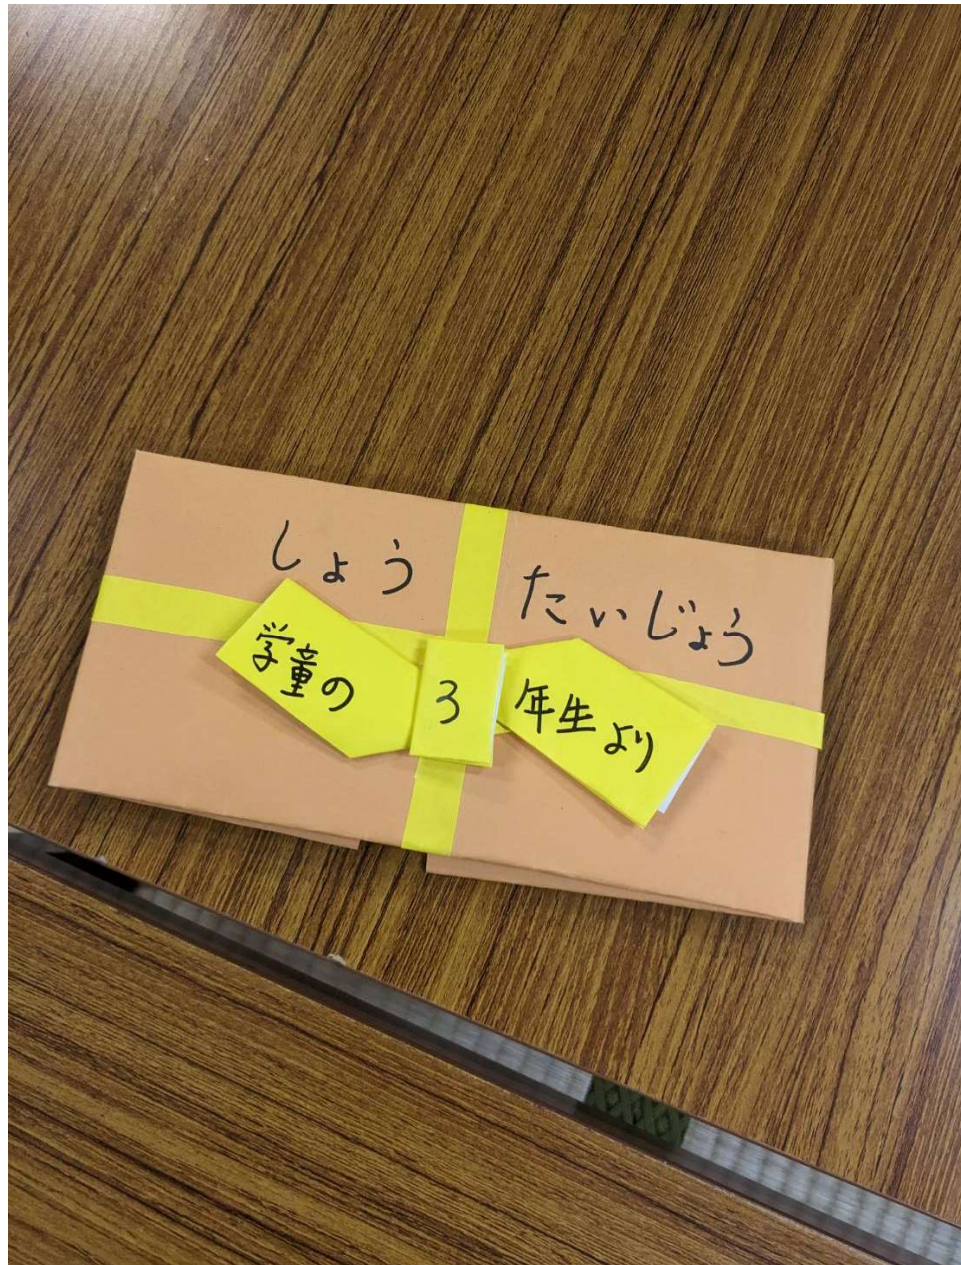 しょうたいじょう
学童の3年生より